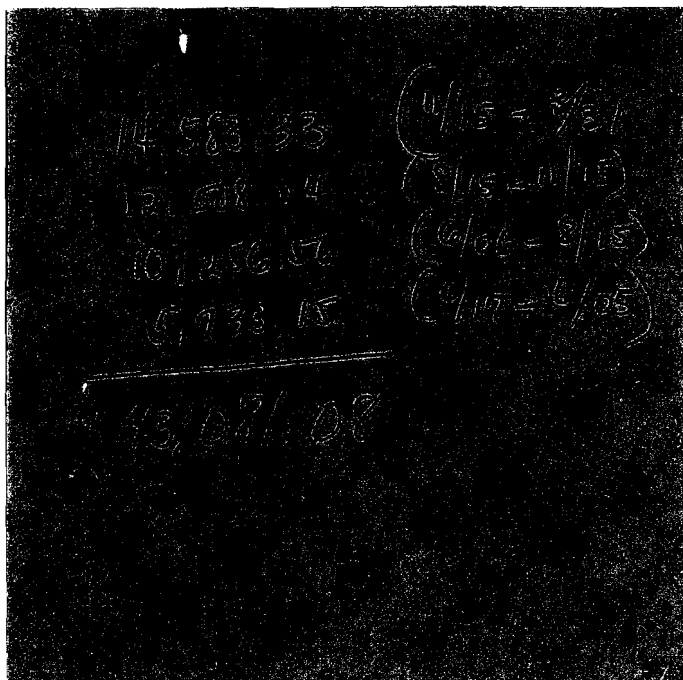 14,583.33 (11/15 - 3/31
12,508.04 (8/15 - 11/15)
10,256.56 (6/06 - 8/15)
5,733.15 (4/17 - 6/05)
43,081.08